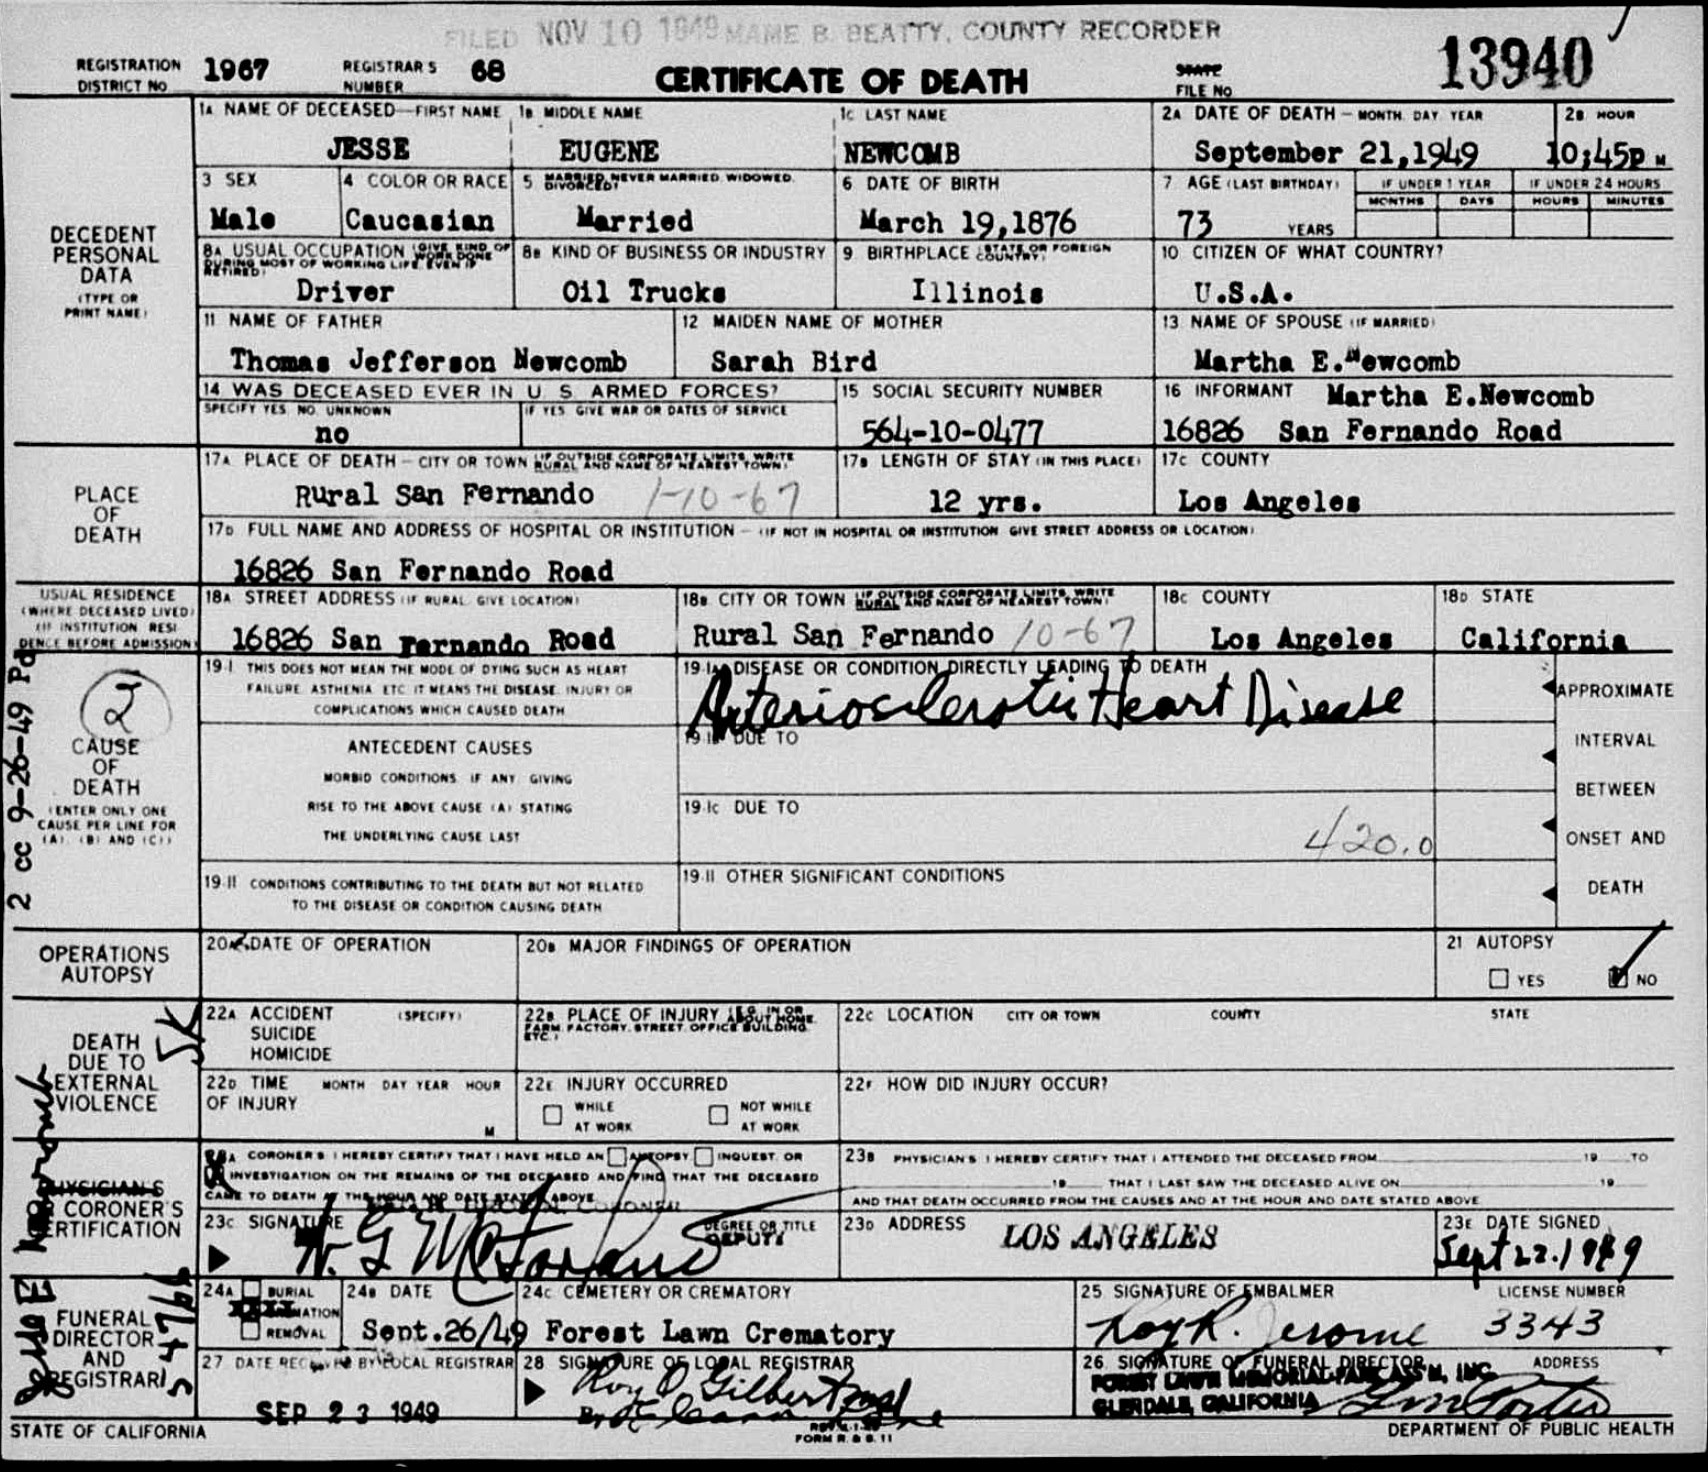 FILED NOV 10 1949 MAME B. BEATTY, COUNTY RECORDER
REGISTRATION DISTRICT NO 1967 REGISTRARS NUMBER 68 CERTIFICATE OF DEATH STATE FILE NO 13940
DECEDENT PERSONAL DATA (TYPE OR PRINT NAME)
1A NAME OF DECEASED—FIRST NAME 1B MIDDLE NAME 1C LAST NAME 2A DATE OF DEATH — MONTH DAY YEAR 2B HOUR
JESSE EUGENE NEWCOMB September 21,1949 10;45p M
3 SEX 4 COLOR OR RACE 5 MARRIED, NEVER MARRIED, WIDOWED, DIVORCED? 6 DATE OF BIRTH 7 AGE (LAST BIRTHDAY) IF UNDER 1 YEAR IF UNDER 24 HOURS
MONTHS DAYS HOURS MINUTES
Male Caucasian Married March 19,1876 73 YEARS
8A USUAL OCCUPATION (GIVE KIND OF WORK DONE DURING MOST OF WORKING LIFE, EVEN IF RETIRED) 8B KIND OF BUSINESS OR INDUSTRY 9 BIRTHPLACE (STATE OR FOREIGN COUNTRY) 10 CITIZEN OF WHAT COUNTRY?
Driver Oil Trucks Illinois U.S.A.
11 NAME OF FATHER 12 MAIDEN NAME OF MOTHER 13 NAME OF SPOUSE (IF MARRIED)
Thomas Jefferson Newcomb Sarah Bird Martha E.Newcomb
14 WAS DECEASED EVER IN U. S. ARMED FORCES? 15 SOCIAL SECURITY NUMBER 16 INFORMANT Martha E.Newcomb
SPECIFY YES, NO, UNKNOWN IF YES GIVE WAR OR DATES OF SERVICE
no 564-10-0477 16826 San Fernando Road
PLACE OF DEATH
17A PLACE OF DEATH — CITY OR TOWN (IF OUTSIDE CORPORATE LIMITS, WRITE RURAL AND NAME OF NEAREST TOWN) 17B LENGTH OF STAY (IN THIS PLACE) 17C COUNTY
Rural San Fernando 1-10-67 12 yrs. Los Angeles
17D FULL NAME AND ADDRESS OF HOSPITAL OR INSTITUTION — (IF NOT IN HOSPITAL OR INSTITUTION GIVE STREET ADDRESS OR LOCATION)
16826 San Fernando Road
USUAL RESIDENCE (WHERE DECEASED LIVED) (IF INSTITUTION RESIDENCE BEFORE ADMISSION)
18A STREET ADDRESS (IF RURAL GIVE LOCATION) 18B CITY OR TOWN (IF OUTSIDE CORPORATE LIMITS, WRITE RURAL AND NAME OF NEAREST TOWN) 18C COUNTY 18D STATE
16826 San Fernando Road Rural San Fernando 10-67 Los Angeles California
2 cc 9-26-49 Pd
2
CAUSE OF DEATH (ENTER ONLY ONE CAUSE PER LINE FOR (A), (B) AND (C))
19-I THIS DOES NOT MEAN THE MODE OF DYING SUCH AS HEART FAILURE, ASTHENIA, ETC. IT MEANS THE DISEASE, INJURY OR COMPLICATIONS WHICH CAUSED DEATH
19-IA DISEASE OR CONDITION DIRECTLY LEADING TO DEATH
Arteriosclerotic Heart Disease
ANTECEDENT CAUSES
MORBID CONDITIONS, IF ANY, GIVING
RISE TO THE ABOVE CAUSE (A) STATING
THE UNDERLYING CAUSE LAST
19-IB DUE TO
19-IC DUE TO
420.0
APPROXIMATE INTERVAL BETWEEN ONSET AND DEATH
19-II CONDITIONS CONTRIBUTING TO THE DEATH BUT NOT RELATED TO THE DISEASE OR CONDITION CAUSING DEATH
19-II OTHER SIGNIFICANT CONDITIONS
OPERATIONS AUTOPSY
20A DATE OF OPERATION 20B MAJOR FINDINGS OF OPERATION 21 AUTOPSY
YES NO
DEATH DUE TO EXTERNAL VIOLENCE
22A ACCIDENT SUICIDE HOMICIDE (SPECIFY) 22B PLACE OF INJURY (E.G. IN OR ABOUT HOME, FARM, FACTORY, STREET, OFFICE BUILDING, ETC.) 22C LOCATION CITY OR TOWN COUNTY STATE
22D TIME OF INJURY MONTH DAY YEAR HOUR M 22E INJURY OCCURRED WHILE AT WORK NOT WHILE AT WORK 22F HOW DID INJURY OCCUR?
PHYSICIAN'S OR CORONER'S CERTIFICATION
23A CORONER'S I HEREBY CERTIFY THAT I HAVE HELD AN AUTOPSY INQUEST, OR INVESTIGATION ON THE REMAINS OF THE DECEASED AND FIND THAT THE DECEASED CAME TO DEATH AT THE HOUR AND DATE STATED ABOVE
23B PHYSICIAN'S I HEREBY CERTIFY THAT I ATTENDED THE DECEASED FROM 19 TO 19 THAT I LAST SAW THE DECEASED ALIVE ON 19 AND THAT DEATH OCCURRED FROM THE CAUSES AND AT THE HOUR AND DATE STATED ABOVE
CORONER
23C SIGNATURE DEGREE OR TITLE 23D ADDRESS 23E DATE SIGNED
N. G. McFarland DEPUTY LOS ANGELES Sept 22. 1949
FUNERAL DIRECTOR AND REGISTRAR
24A BURIAL CREMATION REMOVAL 24B DATE 24C CEMETERY OR CREMATORY 25 SIGNATURE OF EMBALMER LICENSE NUMBER
Sept.26/49 Forest Lawn Crematory Roy R. Jerome 3343
27 DATE RECEIVED BY LOCAL REGISTRAR 28 SIGNATURE OF LOCAL REGISTRAR 26 SIGNATURE OF FUNERAL DIRECTOR ADDRESS
SEP 23 1949 Roy O. Gilbert MD FOREST LAWN MEMORIAL-PARK ASS'N, INC.
GLENDALE, CALIFORNIA
STATE OF CALIFORNIA FORM R. & S. 11 DEPARTMENT OF PUBLIC HEALTH